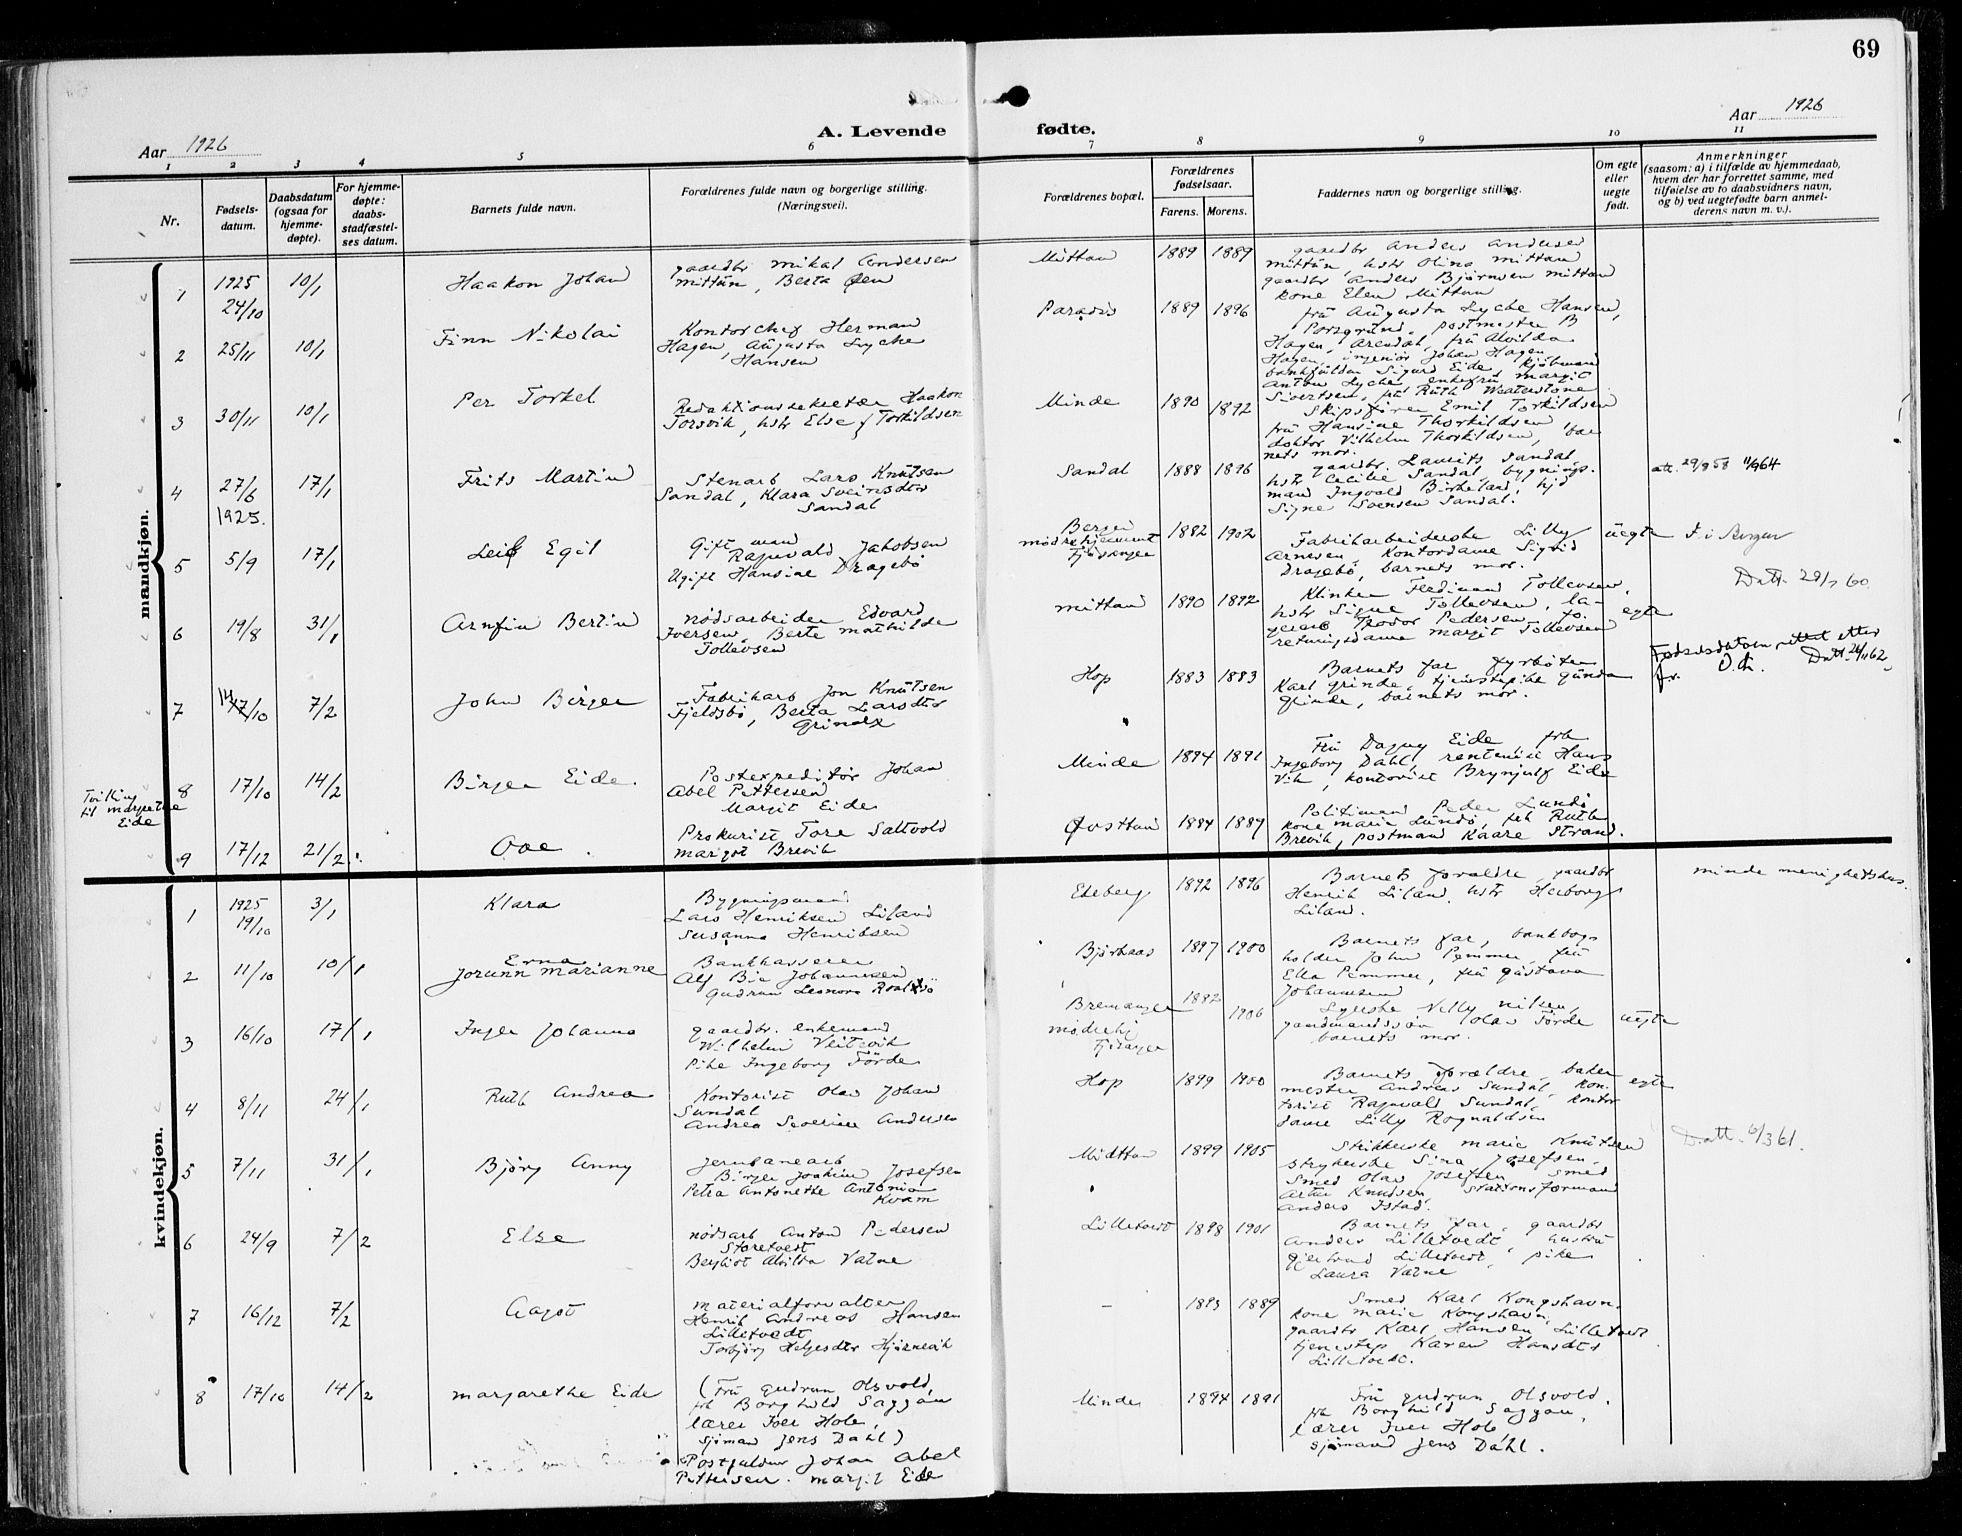 69
Aar 1926
A. Levende
fødte.
Aar 1926
1 2 3 4 5 6 7 8 9 10 11
Nr.
Fødsels-
datum.
Daabsdatum
(ogsaa for
hjemme-
døpte).
For hjemme-
døpte:
daabs-
stadfæstel-
ses datum.
Barnets fulde navn.
Forældrenes fulde navn og borgerlige stilling.
(Næringsvei).
Forældrenes bopæl.
Forældrenes
fødselsaar.
Farens. Morens.
Faddernes navn og borgerlige stilling.
Om egte
eller
uegte
født.
Anmerkninger
(saasom: a) i tilfælde av hjemmedaab,
hvem der har forrettet samme, med
tilføielse av to daabsvidners navn,
og b) ved uegtefødte barn anmel-
derens navn m. v.).
mandkjøn.
1
1925
24/10
10/1
Haakon Johan
gaardbr Mikal Andersen
Mittun, Berta Øen
Mittun
1889 1889
gaardbr Anders Andersen
Mittun, hstr Olina Mittun
gaardbr Anders Bjørnsen Mittun
kone Elen Mittun
2
25/11
10/1
Finn Nikolai
Kontorchef Herman
Hagen, Augusta Lyche
Hansen
Paradis
1889 1896
frü Augusta Lyche Hansen,
Porsgrund, postmester B
Hagen, Arendal, frü Alvilda
Hagen, ingeniør Johan Hagen
Sigurd Eide, kjøbmand
Anton Lyche, enkefrü Margit
Sivertsen, frü Ruth
3
30/11
10/1
Per Torkel
Redaktionssekretær Haakon
Torsvik, hstr Else f Torkildsen
Minde
1890 1892
Skipsfører Emil Torkildsen
frü Hansine Thorkildsen
doktor Vilhelm Thorkildsen, bar
nets mor.
4
27/6
1925.
17/1
Frits Martin
Stenarb Lars Knutsen
Sandal, Klara Sveinsdtr
Sandal
Sandal
1888 1896
gaardbr. Laurits Sandal,
hstr Cecilie Sandal, bygnings-
mand Ingvald Birkeland, hjd
Signe Svensen Sandal.
att. 29/8 58 11/9 64
5
5/9
17/1
Leif Egil
Gift man
Ragnvald Jakobsen
Ugift Hansine Dragebø
Bergen
mødrehjemmet
Fjøsanger
1882 1902
Fabrikarbeiderske Lilly
Arnesen Kontordame Sigrid
Dragebø, barnets mor.
uegte
F. i Bergen
Datt. 29/1 60
6
19/8
31/1
Arnfin Bertin
nødsarbeider Edvard
Iversen, Berte Mathilde
Tollevsen
Mittun
1890 1892
Klinker Ferdinand Tollevsen,
hstr Signe Tollevsen, la-
Teodor Pedersen, fo.
retningsdame Margit Tollevsen
egte
7
14
17/10
7/2
John Birger
Fabrikarb Jon Knutsen
Fjeldsbø, Berta Larsdtr
Grinde
Hop
1883 1883
Barnets far fyrbøter
Karl Grinde, tjenestepike Gunda
Grinde, barnets mor.
Fødselsdatoen rettet etter
D.A. Datt. 26/11 62
8
Tvilling
til Margrethe
Eide
17/10
14/2
Birger Eide.
Postexpeditør Johan
Abel Pettersen
Margit Eide
Minde
1894 1891
Frü Dagny Eide, frk
Ingeborg Dahl, rentenist Hans
Vik, kontorist Brynjulf Eide
9
17/12
21/2
Ove.
Prokurist Tore Sattvold
Margot Brevik
Øvsttun
1884 1889
Politimand Peder Lundø
kone Marie Lundø, frk Ruth
Brevik, postmand Kaare Strand.
kvindekjøn.
1
1925
19/10
3/1
Klara
Bygningsmand
Lars Henriksen Liland
Susanna Henriksen
Edeberg
1892 1896
Barnets forældre, gaardbr
Henrik Liland, hstr Herborg
Liland.
minde menighetshus.
2
11/10
10/1
Erna
Jorunn Marianne
Bankkasserer
Alf Bie Johannesen
Gudrun Leonora
1897 1900
Barnets far, bankbog-
holder John Pemmer, frü
Ella Pemmer, frü Gustava
Johannesen
3
16/10
17/1
Inger Johanna
gaardbr. enkemand
Wilhelm
Pike Ingeborg Førde
Bremanger
mødrehj
Fjøsanger
1882
1906
Syerske Nelly Nilsen,
gaardmandssøn Olav Førde
barnets mor.
uegte
4
8/11
24/1
Ruth Andrea
Kontorist Olav Johan
Sundal
Andrea Severine Andersen
Hop
1899 1900
Barnets forældre, baker
mester Andreas Sundal, kon-
torist Ragnvald Sundal, kontor
dame Lilly Rognaldsen
egte
5
7/11
31/1
Bjørg Anny
Jernbanearb
Birger Joakim Josefsen
Petra Antonette Antonia
Kvam
Midttun
1899 1905
Strikkerske Marie Knutsen
strykerske Sina Josefsen,
smed Olav Josefsen, smed
Artur Knudsen, stationsformand
Anders Istad.
Datt. 6/3 61.
6
24/9
7/2
Else
nødsarb Anton Pedersen
Storetvedt
Bergliot Alvilda Varne
Lilletvedt
1898 1901
Barnets far, gaardbr
Anders Lilletvedt, hustru
Gjertrud Lilletvedt, pike
Laura Varne
7
16/12
7/2
Aagot
Materialforvalter
Henrik Andreas Hansen
Lilletvedt
Torbjørg Helgesdtr Hjørnevik
–
1893 1889
Smed Karl Kongshavn.
kone Marie Kongshavn,
gaardbr Karl Hansen Lilletvedt
tjenestep Karen Hansdtr
Lilletvedt.
8
17/10
14/2
Margarethe Eide
(Frü Gudrun Olsvold,
frk Borghild Saggau
lærer Iver Hole,
sjømand Jens Dahl)
Johan Abel
Pettersen. Margit Eide
Minde
1894 1891
Frü Gudrun Olsvold,
frk Borghild Saggau,
lærer Iver Hole
sjømand Jens Dahl.